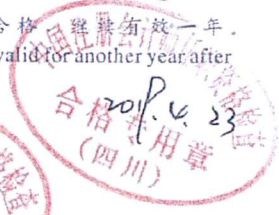 合格，继续有效一年。
valid for another year after
中国注册会计师任职资格检查
合格专用章
(四川)
2019.4.23
格检查